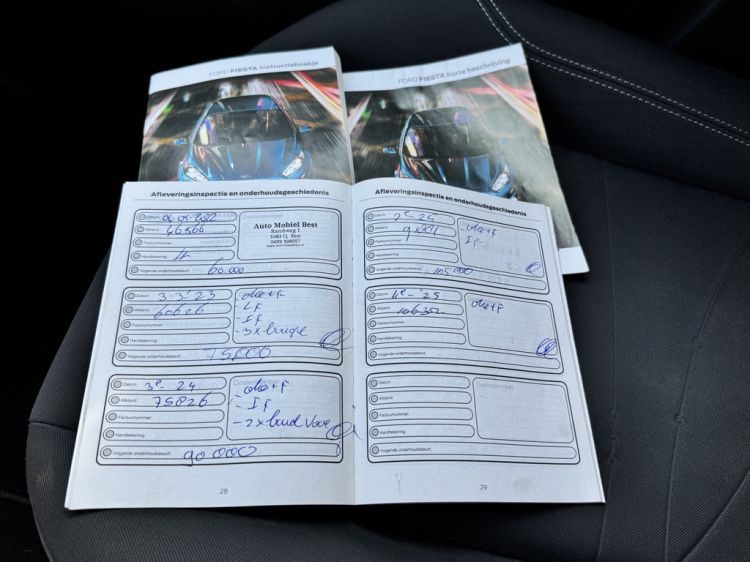 FORD FIESTA Instructieboekje
FORD FIESTA Korte beschrijving
Afleveringsinspectie en onderhoudsgeschiedenis
Datum:
Afstand: 46566
Factuurnummer:
Handtekening:
Volgende onderhoudsbeurt: 60.000
Auto Mobiel Best
Randweg 1
5683 CL Best
0499 398097
Datum: 3-3-'23
Afstand: 60626
Factuurnummer:
Handtekening:
Volgende onderhoudsbeurt: 75.000
- olie + F
- LF
- IF
Datum: 3e - 24
Afstand: 75826
Factuurnummer:
Handtekening:
Volgende onderhoudsbeurt: 90 000
- olie + F
- IF
- 2 x band voor
28
Afleveringsinspectie en onderhoudsgeschiedenis
Datum: 2e - 25
Afstand:
Factuurnummer:
Handtekening:
Volgende onderhoudsbeurt: 105 000
- olie + F
IF
Datum: 11e - 25
Afstand: 106352
Factuurnummer:
Handtekening:
Volgende onderhoudsbeurt:
olie + F
Datum:
Afstand:
Factuurnummer:
Handtekening:
Volgende onderhoudsbeurt:
29